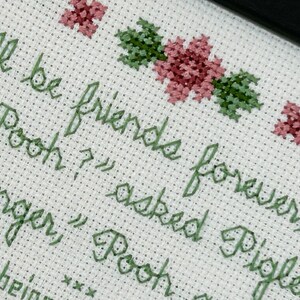 ll be friends forever
Pooh?" asked Pigle
nger," Pooh
being